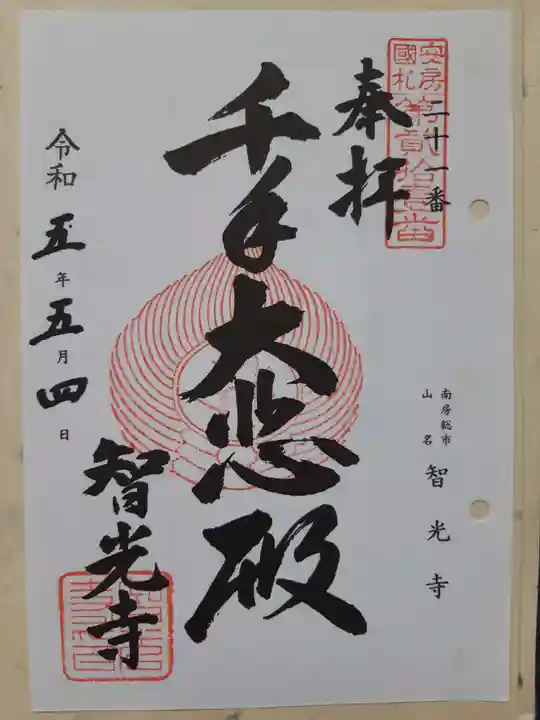 安房
國札
第貳拾壹番
二十一番
奉拝
千手大悲殿
令和五年五月四日
智光寺
南房総市
山名
智光寺